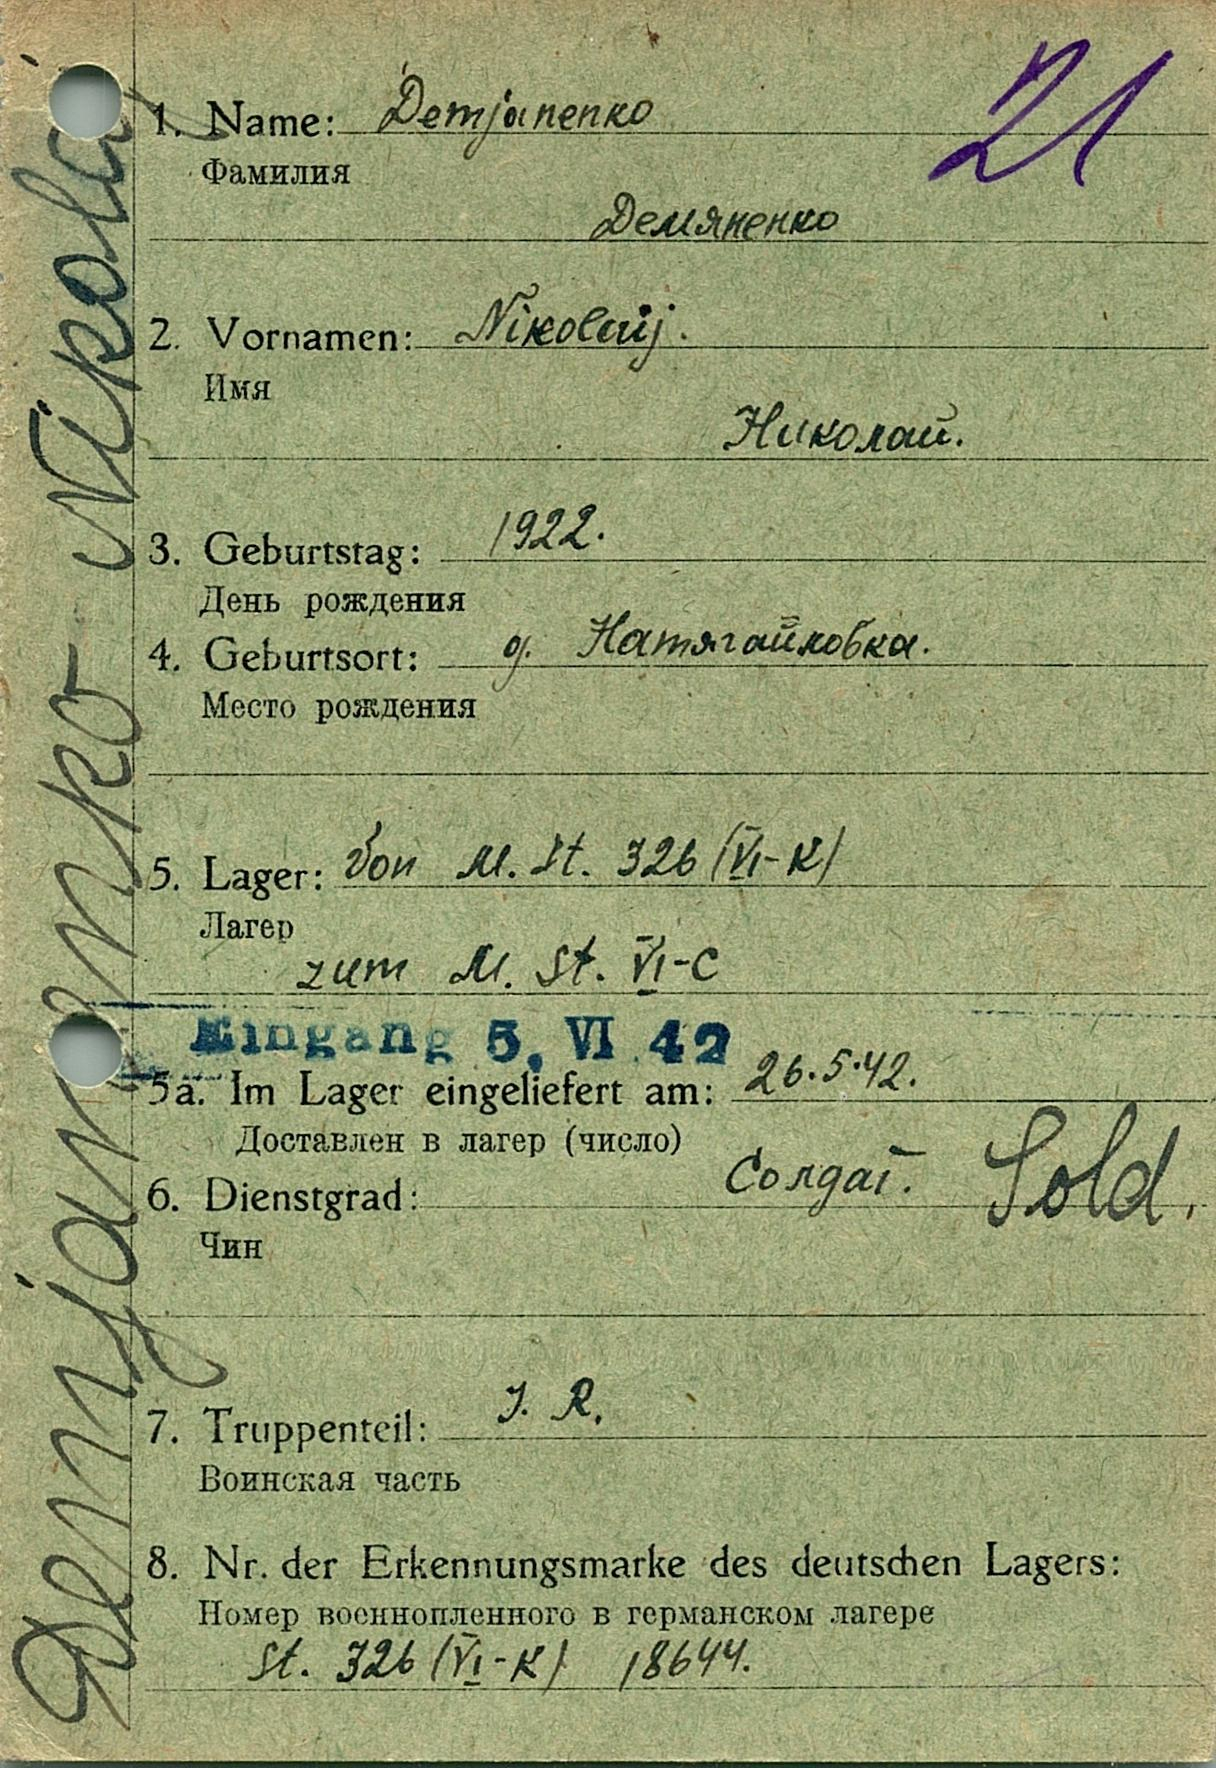 21
1. Name: Demjanenko
Фамилия
Демяненко
2. Vornamen: Nikolaij.
Имя
Николай.
3. Geburtstag: 1922.
День рождения
4. Geburtsort: д. Натягайловка.
Место рождения
5. Lager: Von M. St. 326 (VI-K)
Лагер
zum M. St. VI-C
Eingang 5. VI 42
5a. Im Lager eingeliefert am: 26.5.42.
Доставлен в лагер (число)
6. Dienstgrad: Солдат. Sold.
Чин
7. Truppenteil: J. R.
Воинская часть
8. Nr. der Erkennungsmarke des deutschen Lagers:
Номер военнопленного в германском лагере
St. 326 (VI-K) 18644.
Demjanenko Nikolaj